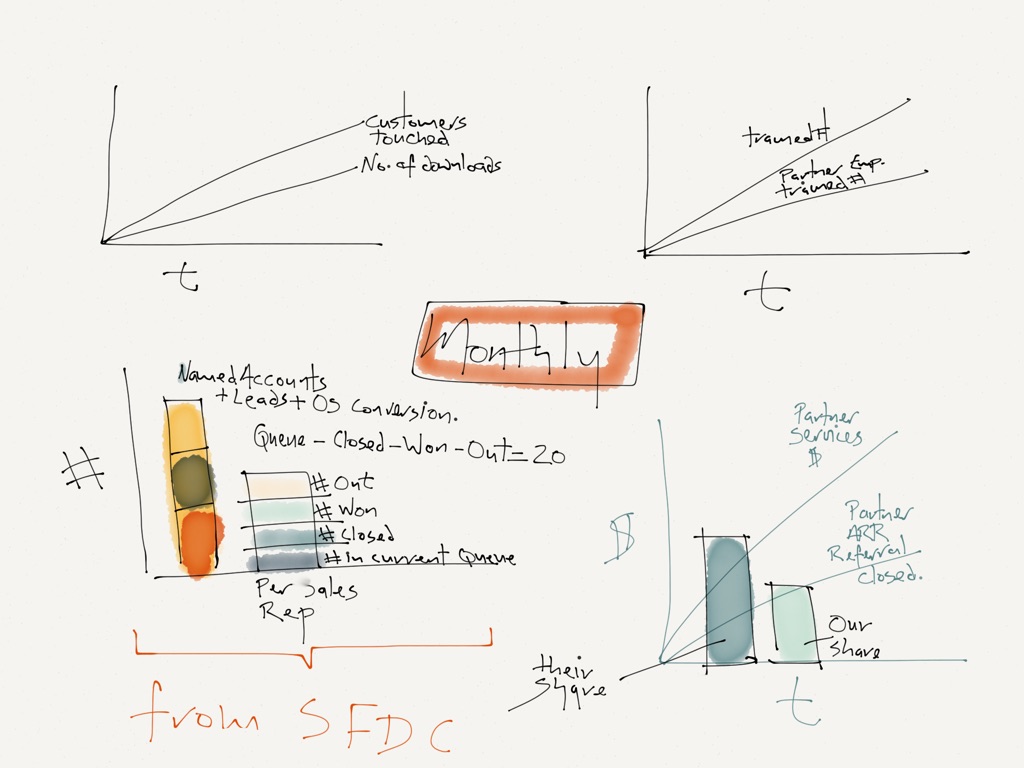 Customers
touched
No. of downloads
t
trained #
Partner Emp.
trained #
t
Monthly
Named Accounts
+ Leads + OS Conversion.
Queue - Closed - Won - Out = 20
#
# Out
# Won
# Closed
# in current Queue
Per Sales
Rep
from SFDC
Partner
Services
$
Partner
ARR
Referral
closed.
$
Our
Share
their
Share
t